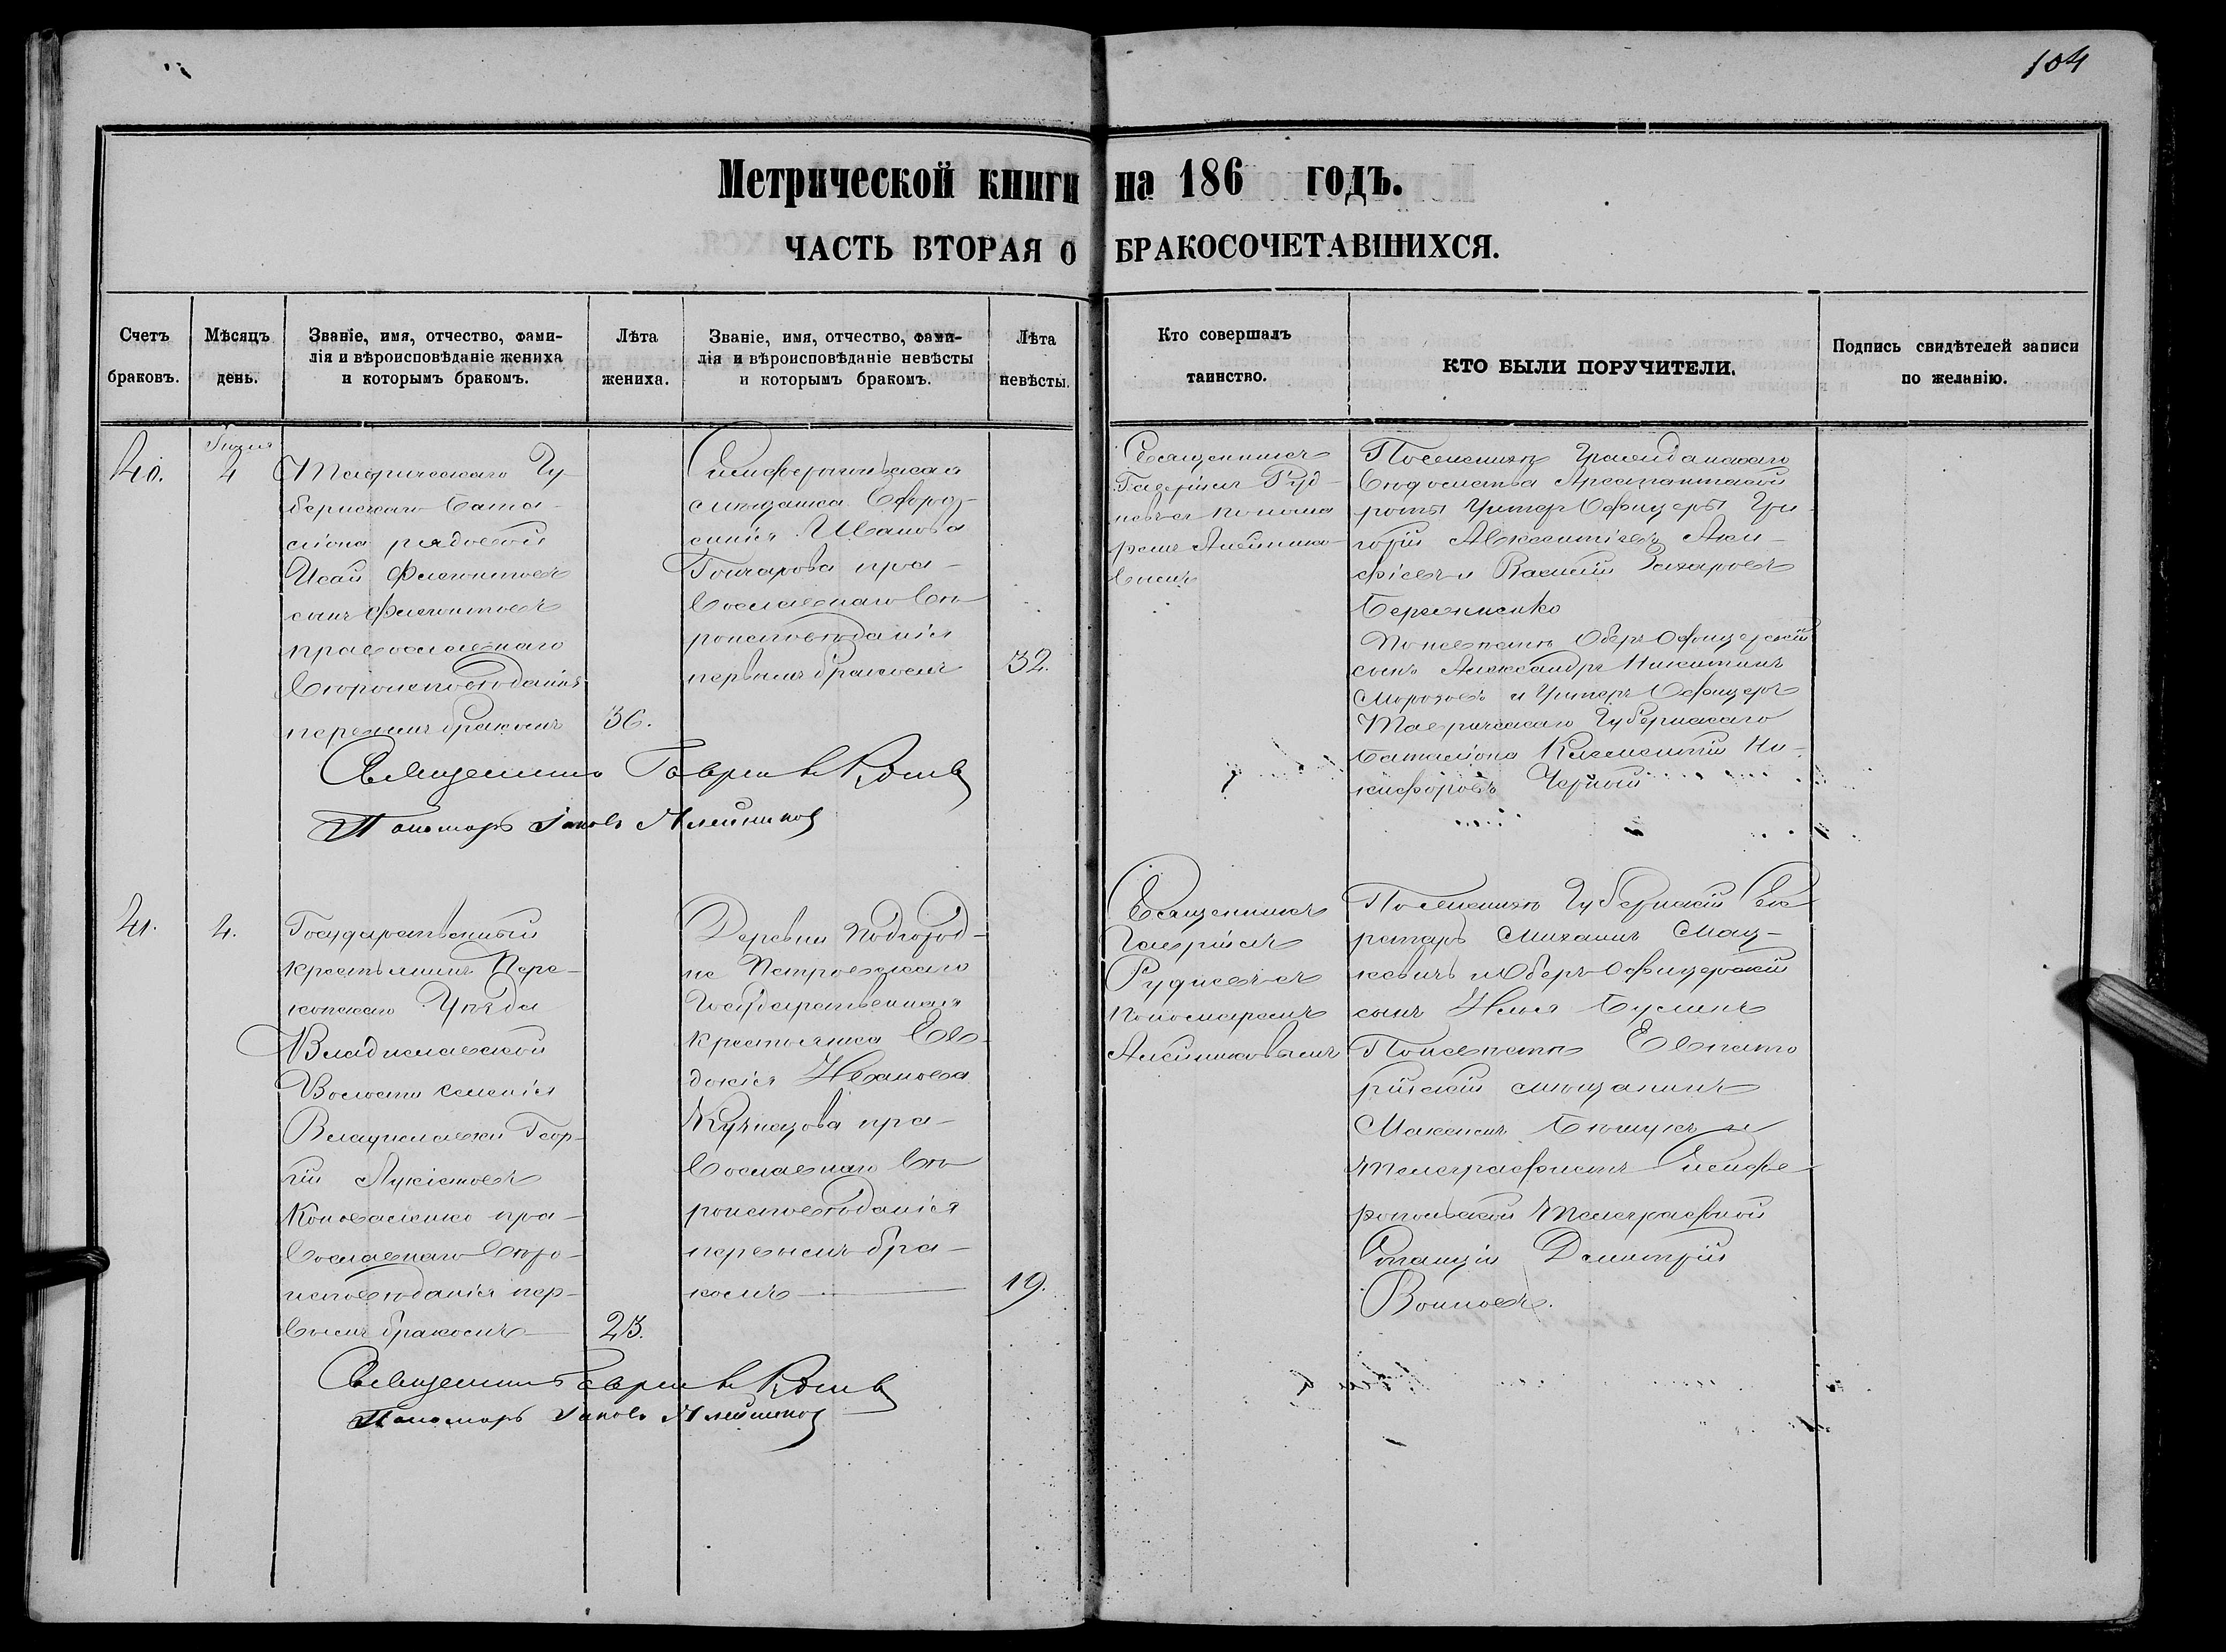 104
Метрической книги на 186 годъ.
ЧАСТЬ ВТОРАЯ О БРАКОСОЧЕТАВШИХСЯ.
Счетъ браковъ.
Мѣсяцъ день.
Званіе, имя, отчество, фами-
лія и вѣроисповѣданіе жениха
и которымъ бракомъ.
Лѣта жениха.
Званіе, имя, отчество, фами-
лія и вѣроисповѣданіе невѣсты
и которымъ бракомъ.
Лѣта невѣсты.
Кто совершалъ
таинство.
КТО БЫЛИ ПОРУЧИТЕЛИ.
Подпись свидѣтелей записи
по желанію.
40.
4
Таврическаго Гу-
бернскаго Бата-
ліона рядовой
Исай Филиповъ
сынъ Филиповъ
православнаго
вѣроисповѣданія
первымъ бракомъ
36.
Симферопольская
мѣщанка Евфро-
синія Иванова
Гончарова пра-
вославнаго вѣ-
роисповѣданія
первымъ бракомъ
32.
Священникъ
Гавріилъ Руд-
невъ съ понома
ремъ Алейнико-
вымъ
По женихѣ Гражданскаго
вѣдомства Арестантской
роты Унтеръ Офицеры Гри-
горій Авксентіевъ
и Василій Захаровъ
По невѣстѣ Оберъ Офицерскій
сынъ Александръ Никитинъ
Морозовъ и Унтеръ Офицеръ
Таврическаго Губернскаго
баталіона Климентій Ни-
кифоровъ Черный
Священникъ Гавріилъ Рудневъ
Пономарь Іаковъ Алейниковъ
41.
4.
Государственный
крестьянинъ Пере-
копскаго Уѣзда
Владиславской
Волости селенія
Владиславки Геор-
гій
Коноваленко пра-
вославнаго вѣро-
исповѣданія пер-
вымъ бракомъ
23.
Деревни Подгород-
не Петровскаго
Государственная
крестьянка Ев-
докія Иванова
пра-
вославнаго вѣ-
роисповѣданія
первымъ бра-
комъ
19.
Священникъ
Гавріилъ
Рудневъ съ
пономаремъ
Алейниковымъ
По женихѣ Губернскій Сек
ретарь Михаилъ Мац-
кевичъ и Оберъ-Офицерскій
сынъ Илья
По невѣстѣ Евпато
рійскій мѣщанинъ
Максимъ и
Телеграфистъ Симфе
ропольской Телеграфной
Станціи Димитрій
Волковъ.
Священникъ Гавріилъ Рудневъ
Пономарь Іаковъ Алейниковъ